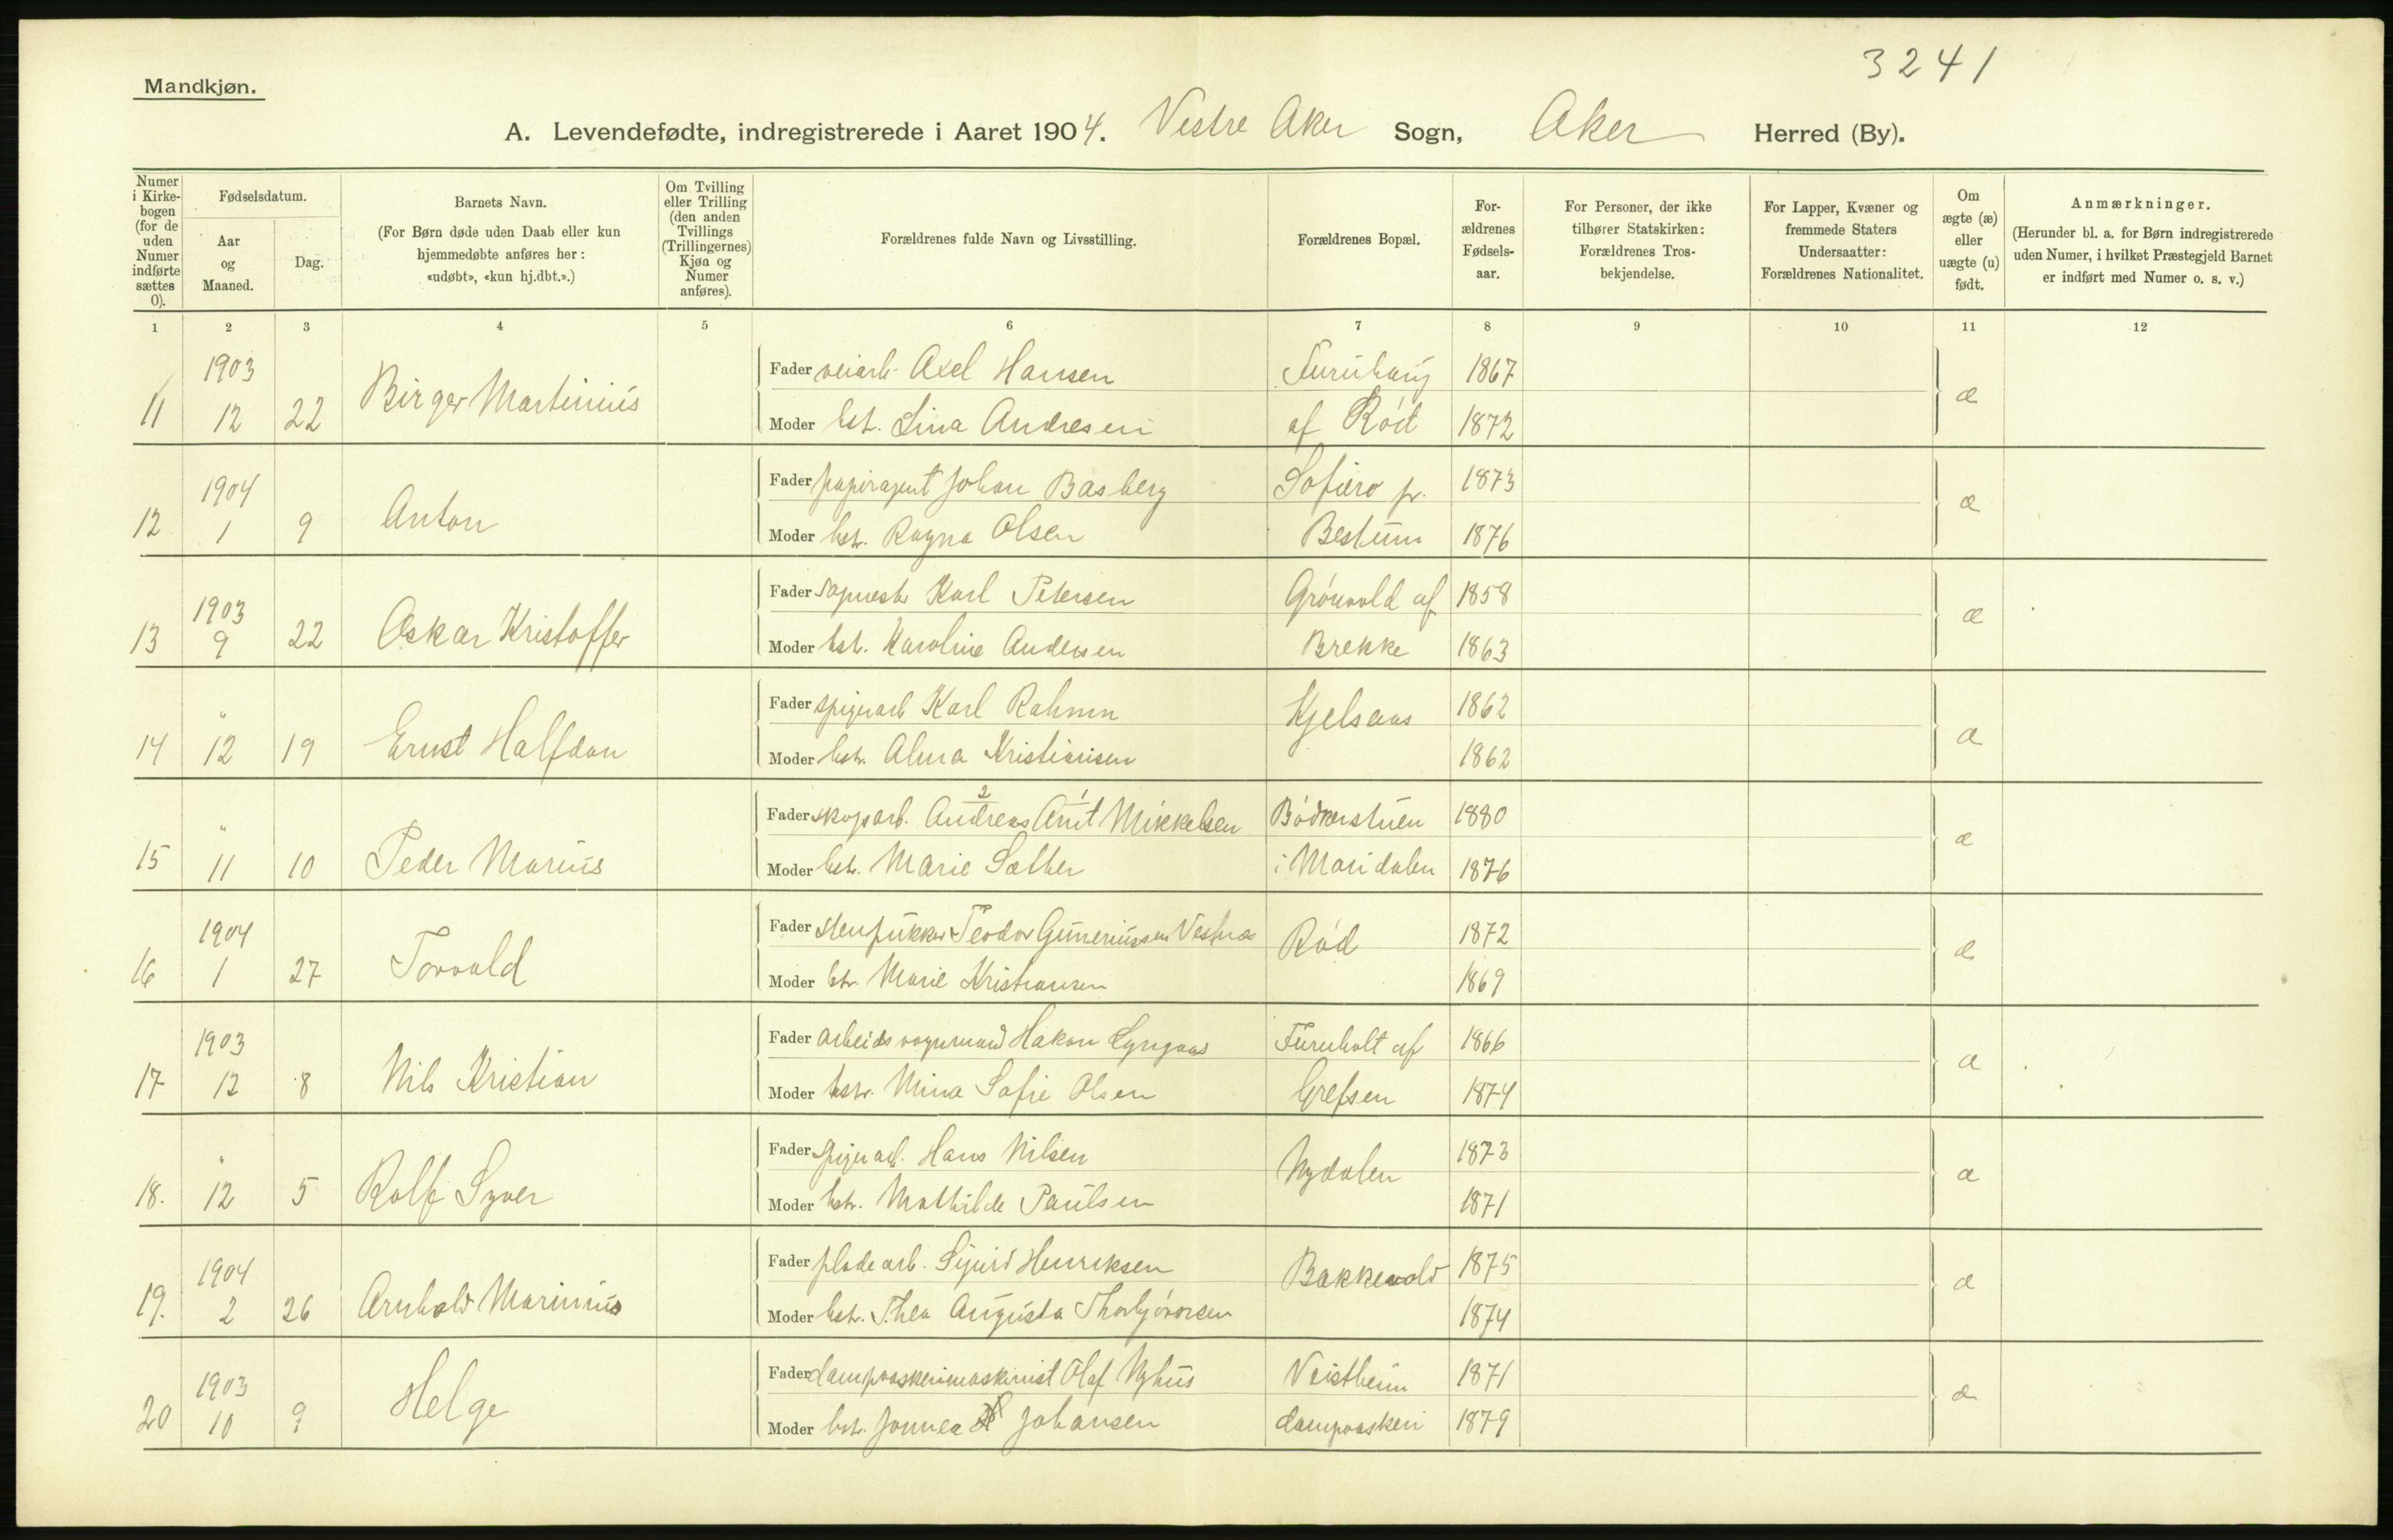 3241
Mandkjøn.
A. Levendefødte, indregistrerede i Aaret 1904. Vestre Aker Sogn, Aker Herred (By).
Numer i Kirkebogen (for de uden Numer indførte sættes 0).
Fødselsdatum.
Aar og Maaned.
Dag.
Barnets Navn.
(For Børn døde uden Daab eller kun hjemmedøbte anføres her: «udøbt», «kun hj.dbt.».)
Om Tvilling eller Trilling (den anden Tvillings (Trillingernes) Kjøn og Numer anføres).
Forældrenes fulde Navn og Livsstilling.
Forældrenes Bopæl.
For-ældrenes Fødsels-aar.
For Personer, der ikke tilhører Statskirken: Forældrenes Tros-bekjendelse.
For Lapper, Kvæner og fremmede Staters Undersaatter: Forældrenes Nationalitet.
Om ægte (æ) eller uægte (u) født.
Anmærkninger.
(Herunder bl. a. for Børn indregistrerede uden Numer, i hvilket Præstegjeld Barnet er indført med Numer o. s. v.)
1 2 3 4 5 6 7 8 9 10 11 12
1903 Fader veiarb. Axel Hansen Furuhaug 1867
11 12 22 Birger Martinius æ
Moder hst. Lina Andresen af Rød 1872
1904 Fader papiragent Johan Basberg Sofiero pr. 1873
12 1 9 Anton æ
Moder hst. Ragna Olsen Bestum 1876
1903 Fader Karl Petersen Grønvold af 1858
13 9 22 Oskar Kristoffer æ
Moder hst. Karoline Andersen Brekke 1863
" Fader spigerarb Karl Rahmn Kjelsaas 1862
14 12 19 Ernst Halfdan æ
Moder hst. Alma Kristiansen 1862
2 1
" Fader skogsarb. Andreas Arnt Mikkelsen Bødkerstuen 1880
15 11 10 Peder Marius æ
Moder hst. Marie Sæther i Maridalen 1876
1904 Fader stenpukker Teodor Guneriussen Vestnæs Rød 1872
16 1 27 Torvald æ
Moder hst. Marie Kristiansen 1869
1903 Fader arbeidsvognmand Hakon Lyngaas Furuholt af 1866
17 12 8 Nils Kristian æ
Moder hst. Mina Sofie Olsen Grefsen 1874
" Fader spigerarb. Hans Nilsen Nydalen 1873
18. 12 5 Rolf Syver æ
Moder hst. Mathilde Paulsen 1871
1904 Fader pladearb. Sigurd Henriksen Bakkevold 1875
19. 2 26 Arnhold Marinius æ
Moder hst. Thea Augusta Thorbjørnsen 1874
1903 Fader dampvaskerimaskinist Olaf Nyhus Veistheim 1871
20 10 9 Helge æ
Moder hst. Johansen dampvaskeri 1879